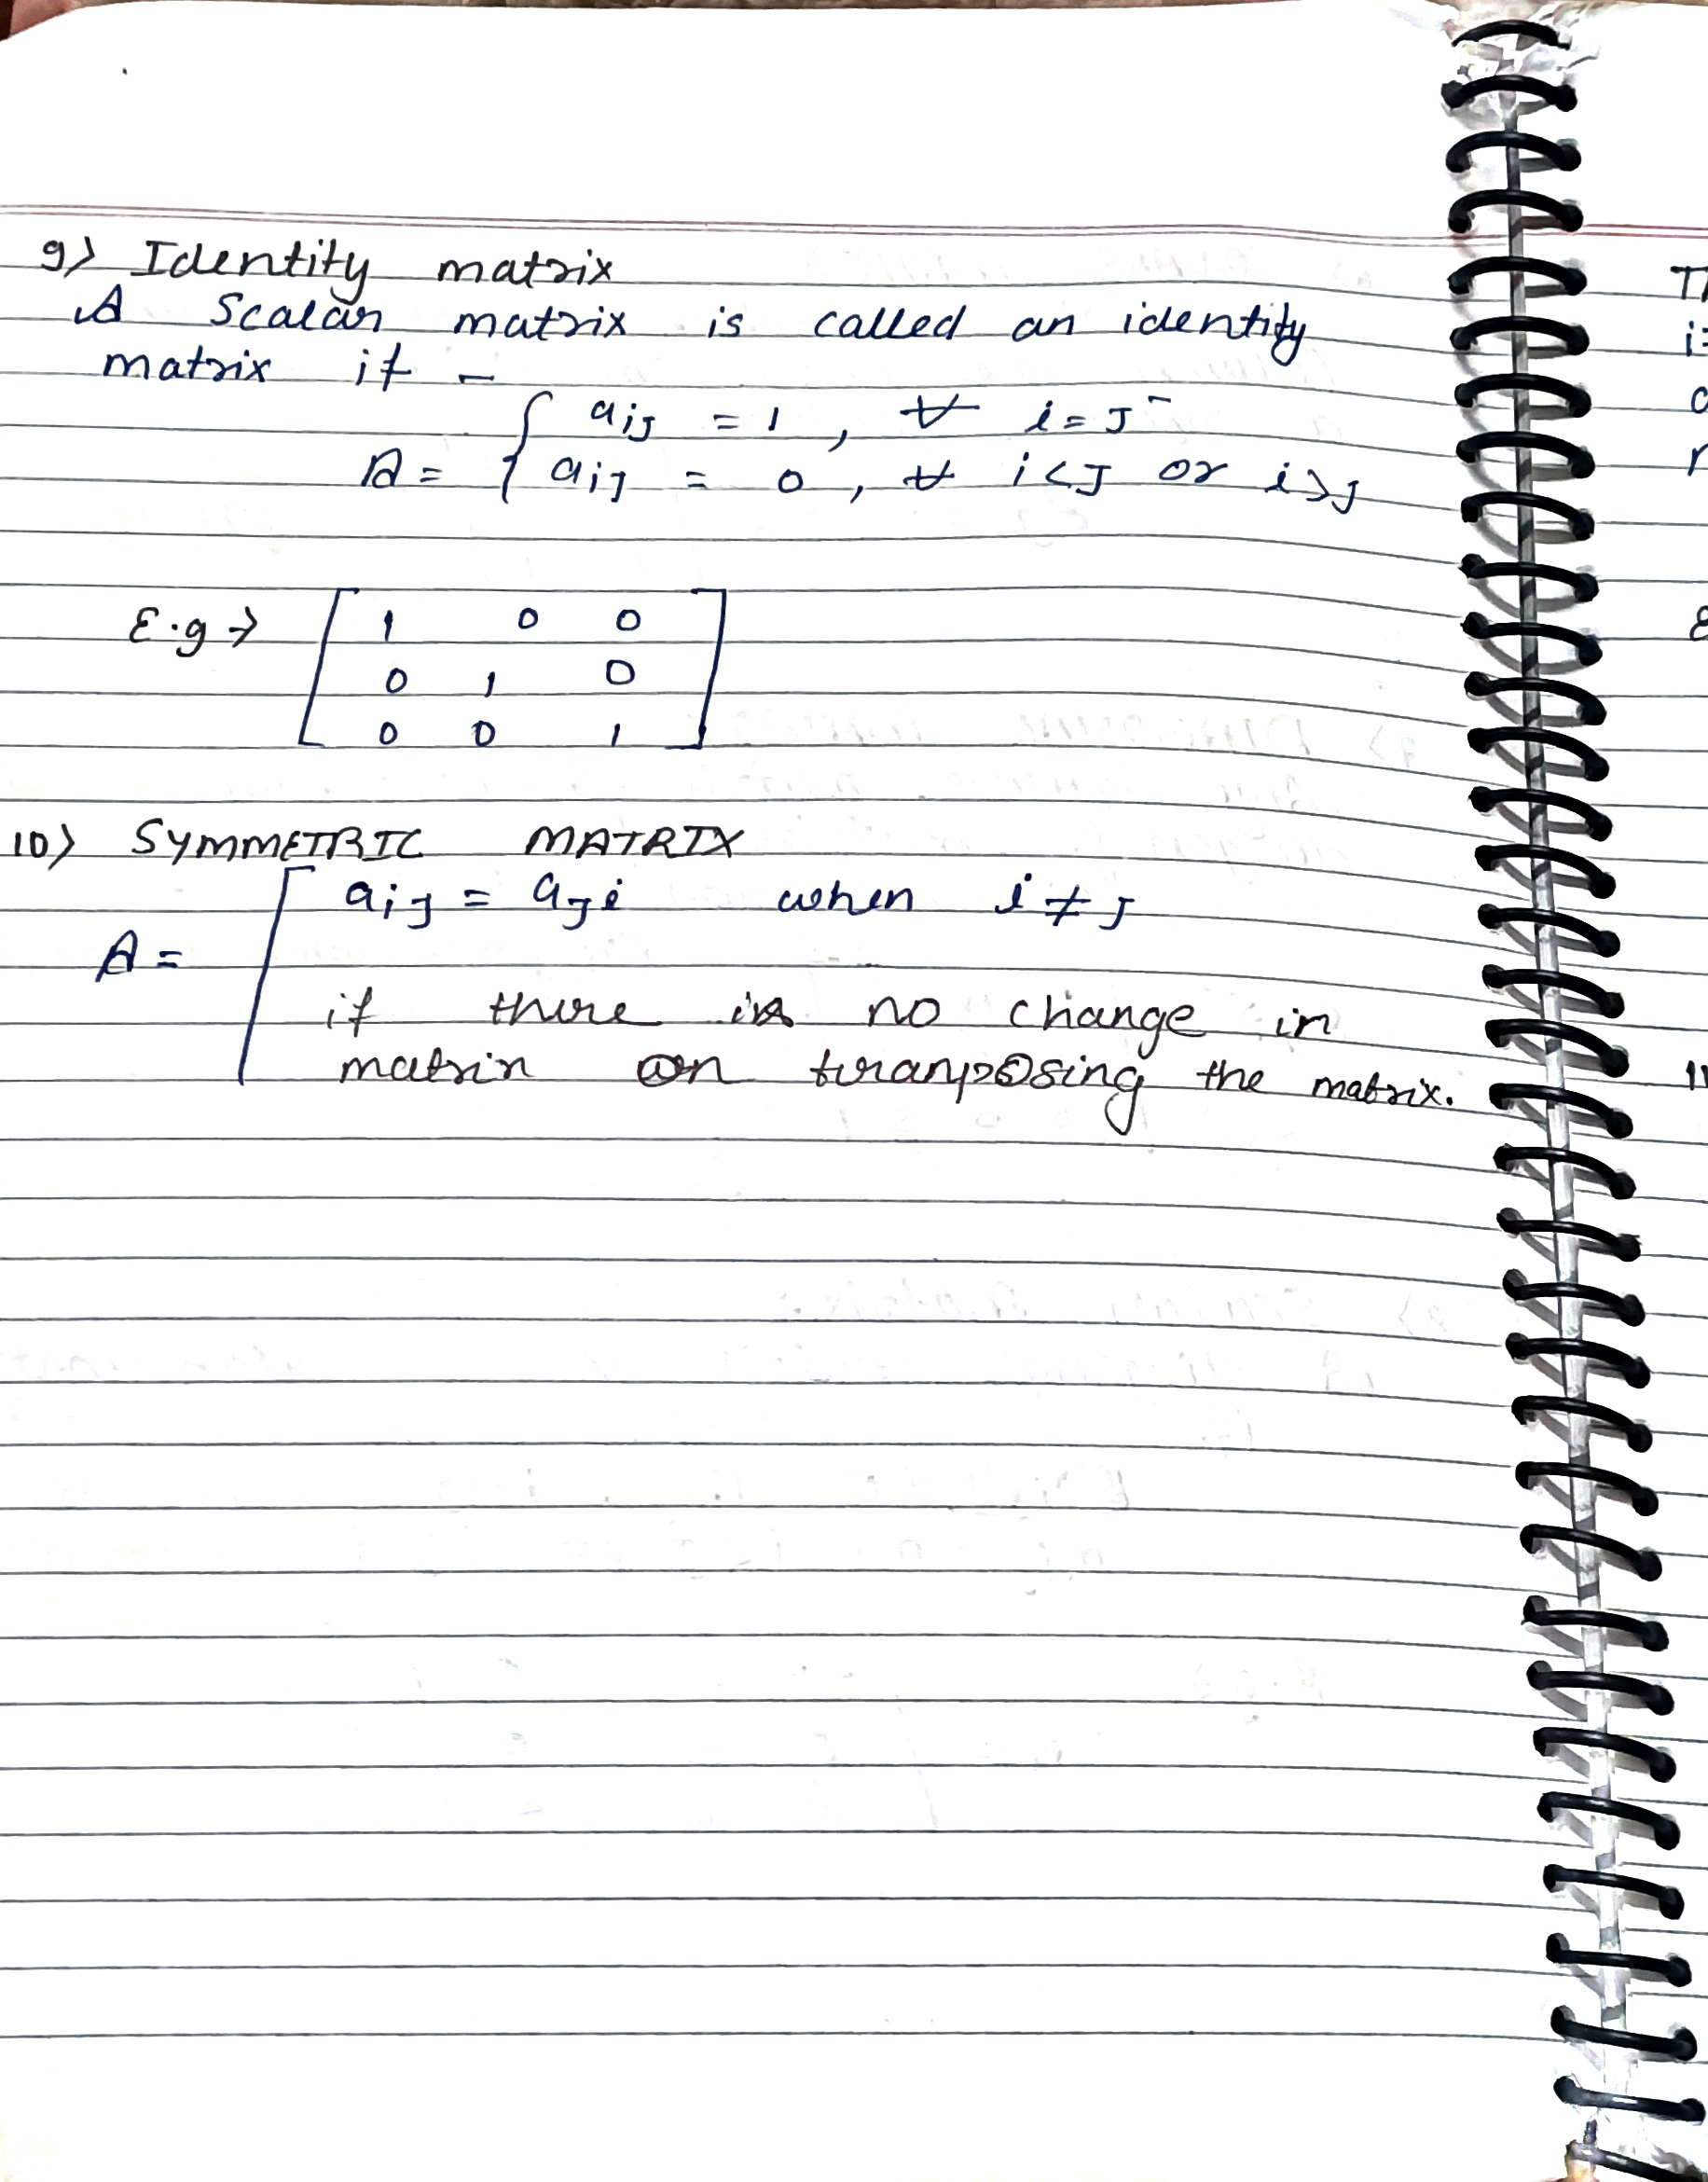 9) Identity matrix
A Scalar matrix is called an identity
matrix if -
aij = 1 , ∀ i = j
A = { aij = 0 , ∀ i < j or i > j
E.g → [ 1 0 0
0 1 0
0 0 1 ]
10) SYMMETRIC MATRIX
aij = aji when i ≠ j
A = [
if there is no change in
matrix on tranposing the matrix.